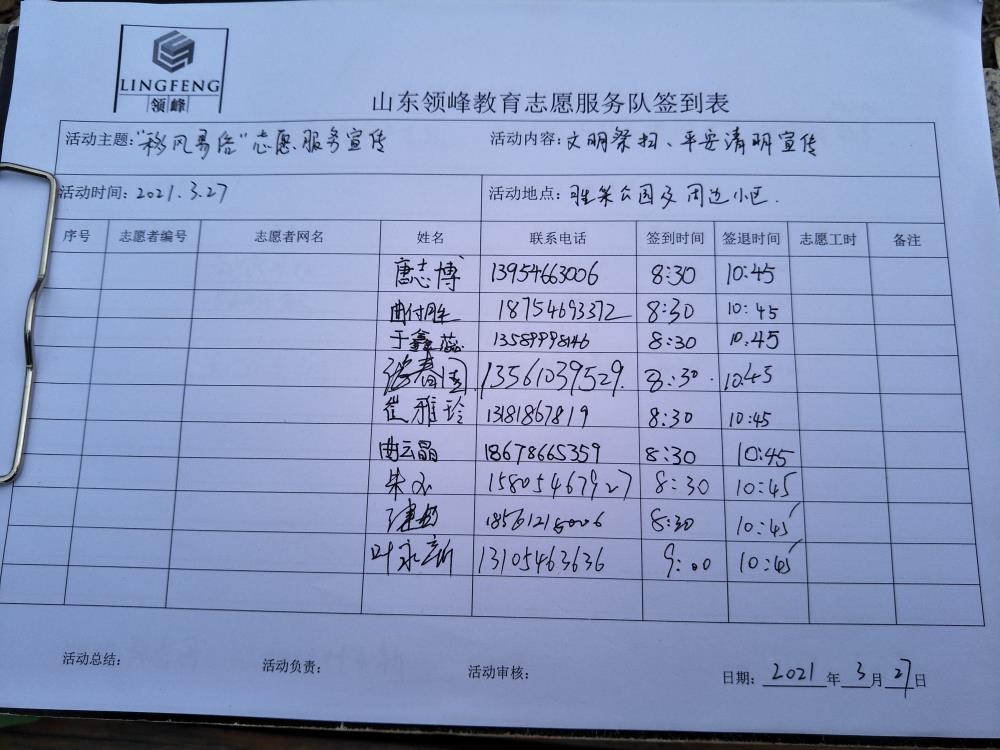 LINGFENG
领峰
山东领峰教育志愿服务队签到表
活动主题：“移风易俗”志愿服务宣传 活动内容：文明祭扫、平安清明宣传
活动时间：2021.3.27 活动地点：公园及周边小区.
序号 志愿者编号 志愿者网名 姓名 联系电话 签到时间 签退时间 志愿工时 备注
唐志博 13954663006 8:30 10:45
曲付胜 18754693372 8:30 10:45
于鑫蕊 13589998146 8:30 10.45
张春国 13561039529. 8:30. 10.45
崔雅玲 13181867819 8:30 10:45
曲云晶 18678665359 8:30 10:45
朱 15805467927 8:30 10:45
8:30 10:45
叶永新 13105463636 9:00 10:45
活动总结： 活动负责： 活动审核： 日期：2021年3月27日